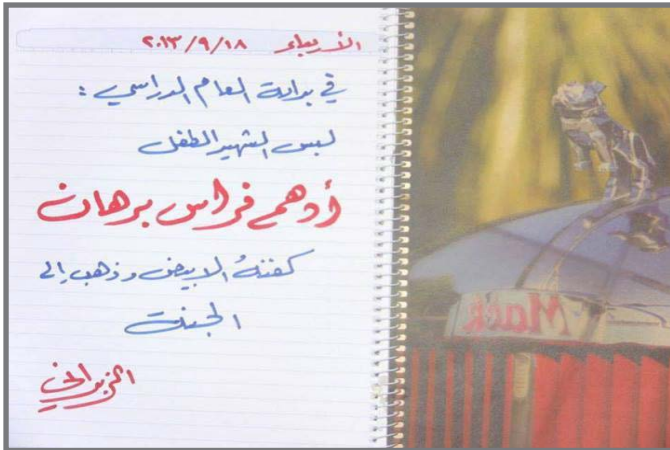 الأربعاء ٢٠١٣/٩/١٨
في بداية العام الدراسي :
لبس الشهيد الطفل
أدهم فراس برهان
كفنهُ الابيض وذهب إلى
الجنة
Mack